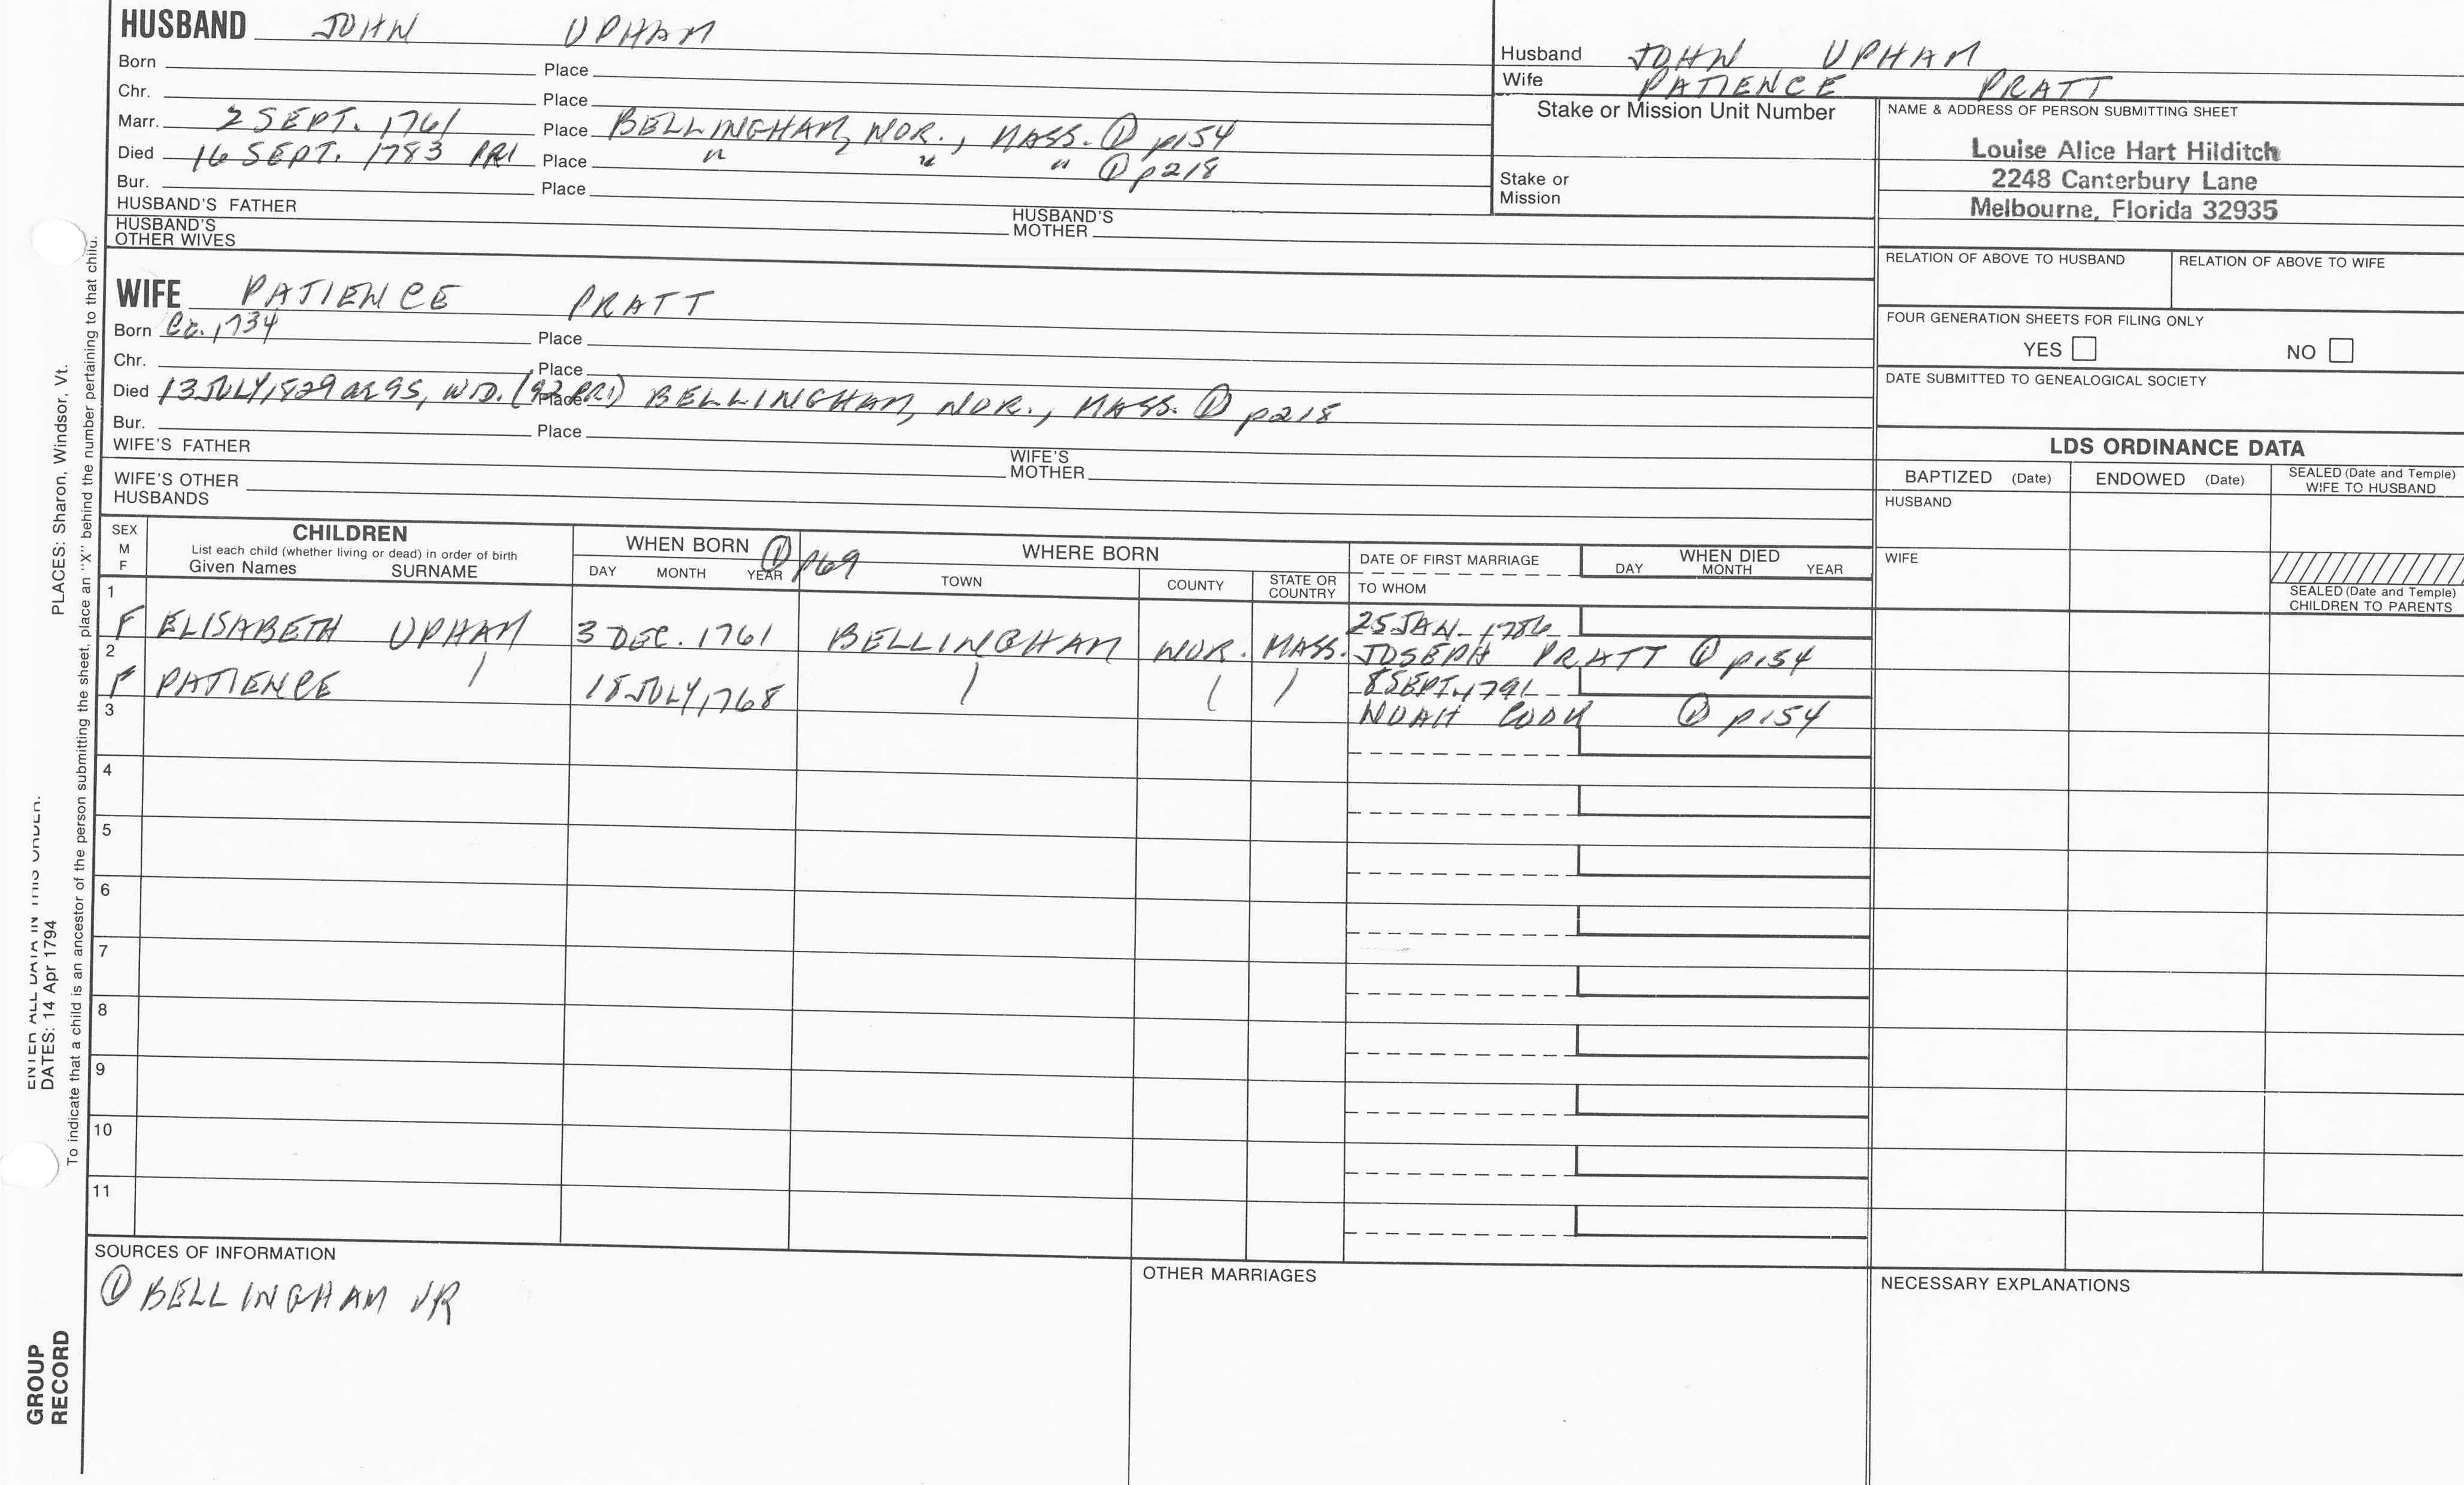 HUSBAND JOHN UPHAM
Born Place
Chr. Place
Marr. 2 SEPT. 1761 Place BELLINGHAM, NOR., MASS. ① p154
Died 16 SEPT. 1783 PR1 Place " " " ① p218
Bur. Place
HUSBAND'S FATHER HUSBAND'S MOTHER
HUSBAND'S OTHER WIVES
Husband JOHN UPHAM
Wife PATIENCE PRATT
Stake or Mission Unit Number
Stake or Mission
NAME & ADDRESS OF PERSON SUBMITTING SHEET
Louise Alice Hart Hilditch
2248 Canterbury Lane
Melbourne, Florida 32935
RELATION OF ABOVE TO HUSBAND RELATION OF ABOVE TO WIFE
FOUR GENERATION SHEETS FOR FILING ONLY
YES NO
DATE SUBMITTED TO GENEALOGICAL SOCIETY
WIFE PATIENCE PRATT
Born Ca. 1734 Place
Chr. Place
Died 13 JULY, 1829 ae 95, WD. (92 PR1) Place BELLINGHAM, NOR., MASS. ① p218
Bur. Place
WIFE'S FATHER WIFE'S MOTHER
WIFE'S OTHER HUSBANDS
LDS ORDINANCE DATA
BAPTIZED (Date) ENDOWED (Date) SEALED (Date and Temple) WIFE TO HUSBAND
HUSBAND
WIFE
SEALED (Date and Temple) CHILDREN TO PARENTS
SEX M F
CHILDREN
List each child (whether living or dead) in order of birth
Given Names SURNAME
WHEN BORN ① p69
DAY MONTH YEAR
WHERE BORN
TOWN COUNTY STATE OR COUNTRY
DATE OF FIRST MARRIAGE
TO WHOM
WHEN DIED
DAY MONTH YEAR
1
25 JAN. 1786
F ELISABETH UPHAM 3 DEC. 1761 BELLINGHAM NOR. MASS. JOSEPH PRATT ① p154
2
8 SEPT. 1791
F PATIENCE 18 JULY, 1768 NOAH COOK ① p154
3
4
5
6
7
8
9
10
11
SOURCES OF INFORMATION
① BELLINGHAM VR
OTHER MARRIAGES
NECESSARY EXPLANATIONS
GROUP
RECORD
ENTER ALL DATA IN THIS ORDER:
DATES: 14 Apr 1794 PLACES: Sharon, Windsor, Vt.
To indicate that a child is an ancestor of the person submitting the sheet, place an "X" behind the number pertaining to that child.